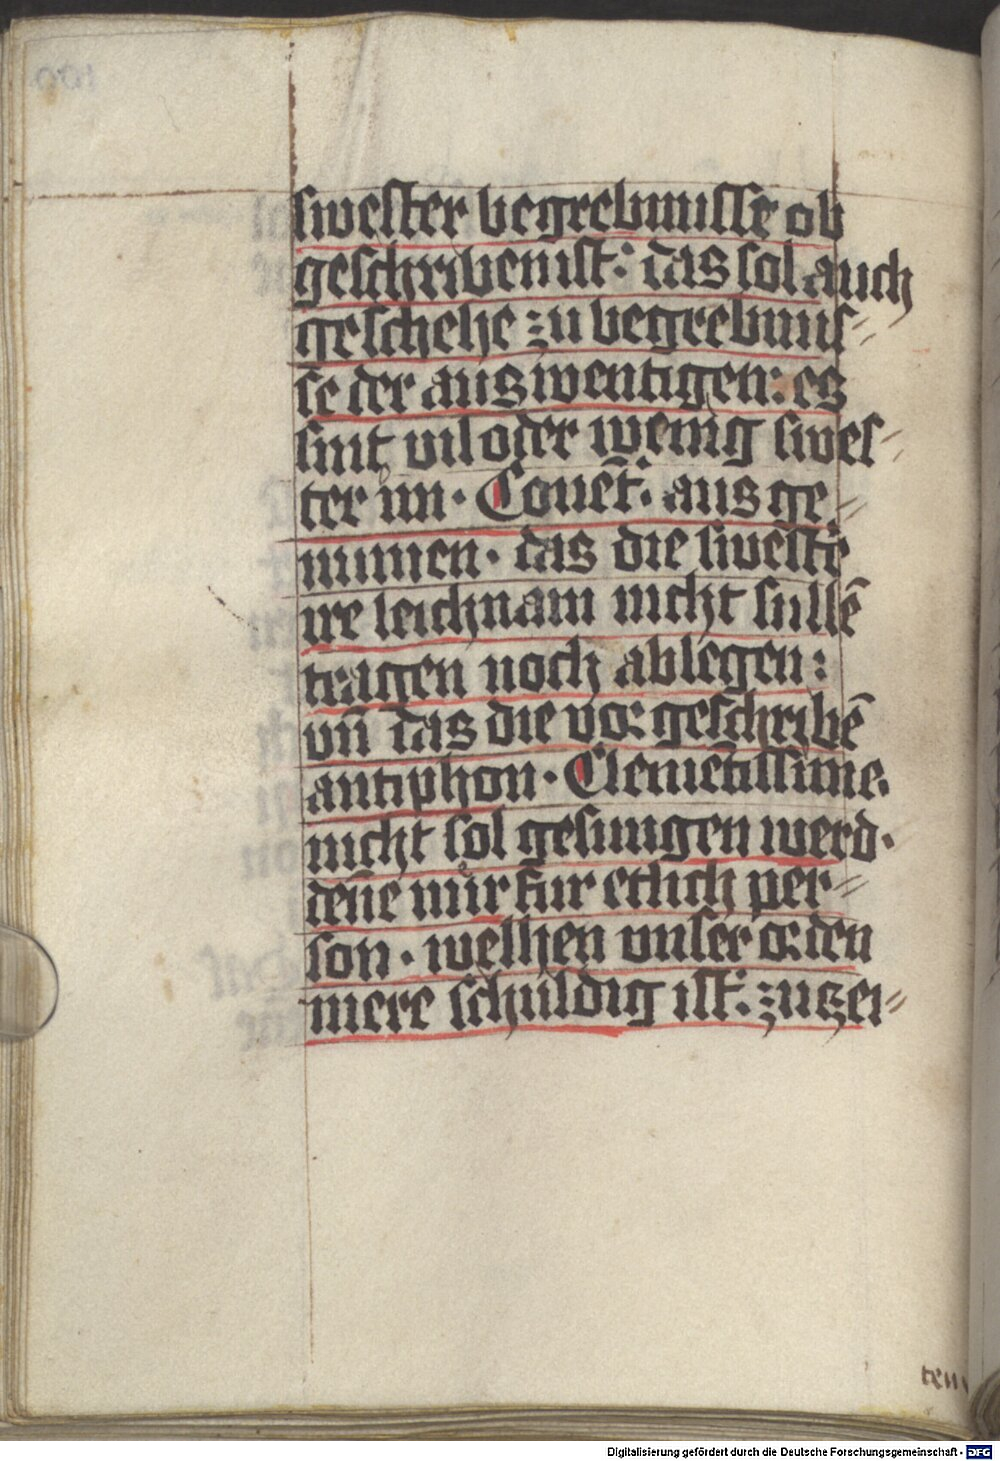 swester begrebnusse ob
geschriben ist: das sol auch
geschehe zu begrebnus=
se der auswentigen: es
sint vil oder wenig swes=
ter ÿnn · Couēt: ausge=
numen · das die swestē
ire leichnam nicht sullē
tragen noch ablegen:
vn̄ das die vorgeschribē
antiphon · Clemētissime.
nicht sol gesungen werd·
den̄e nůr fur etlich per=
son · welhen vnser orden
mere schuldig ist: zu zei=
ten
Digitalisierung gefördert durch die Deutsche Forschungsgemeinschaft - DFG